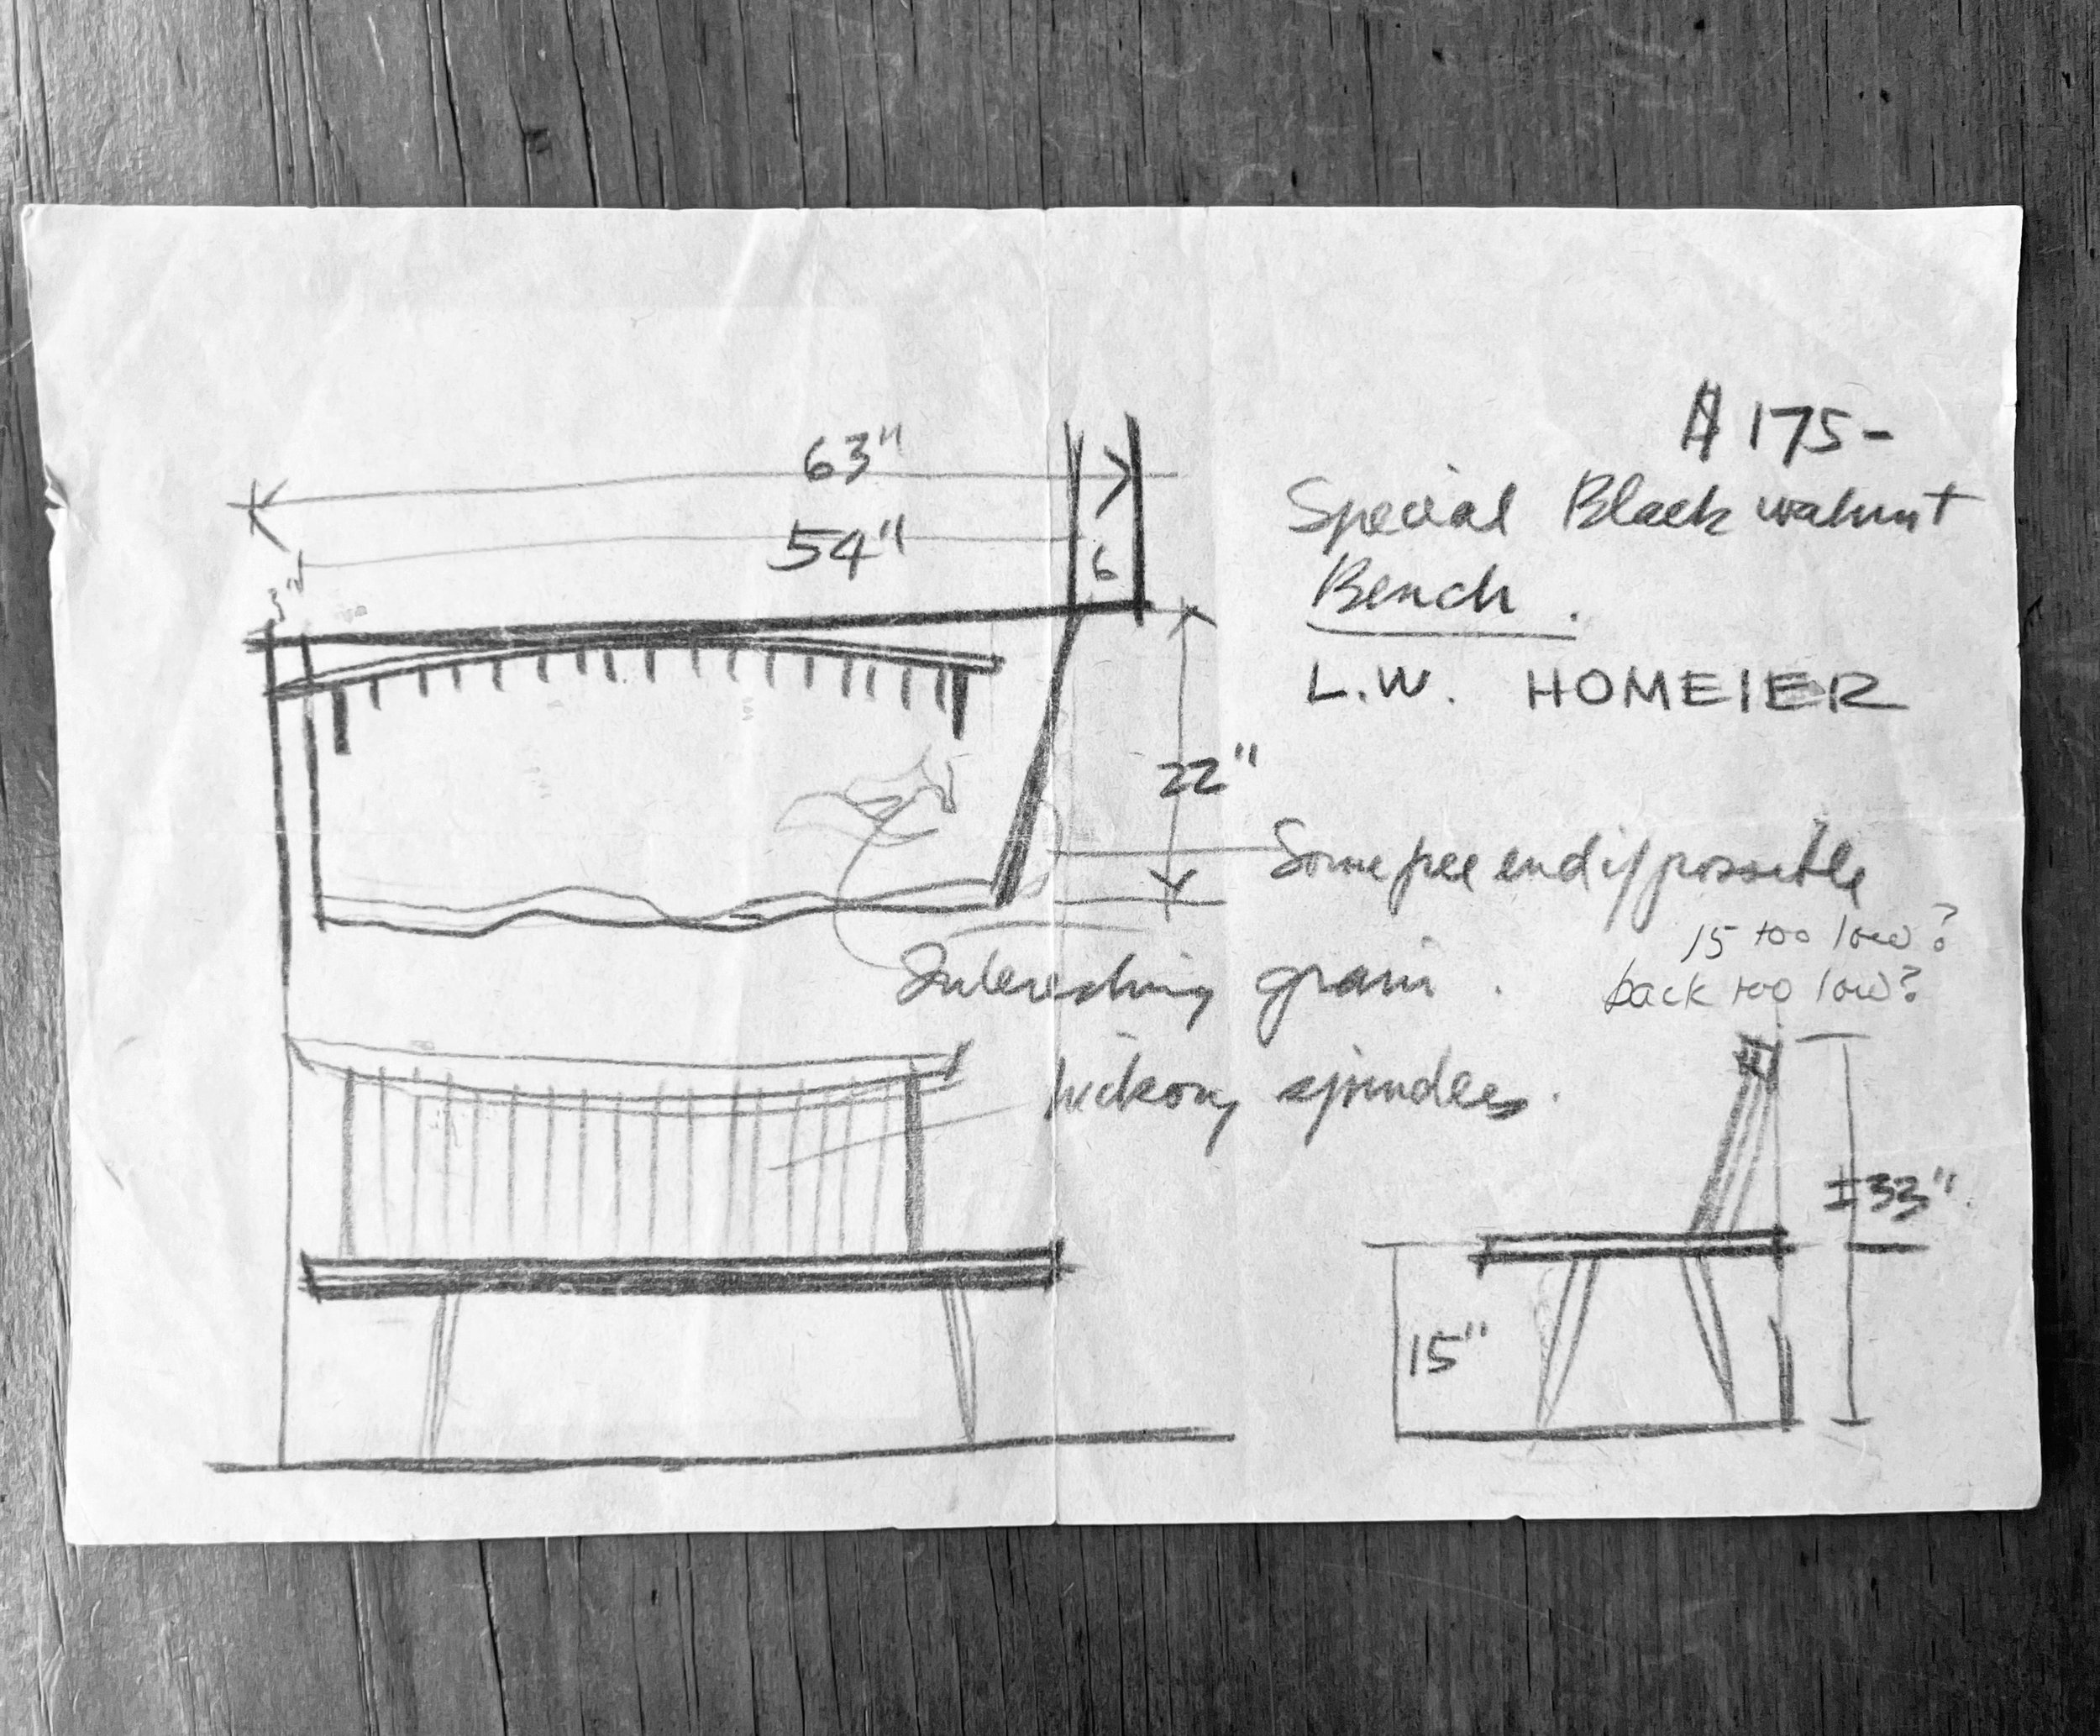 63"
54"
6
3"
$175-
Special Black walnut
Bench.
L.W. HOMEIER
22"
Some free end if possible
15 too low?
back too low?
Interesting grain.
hickory spindles.
±33"
15"